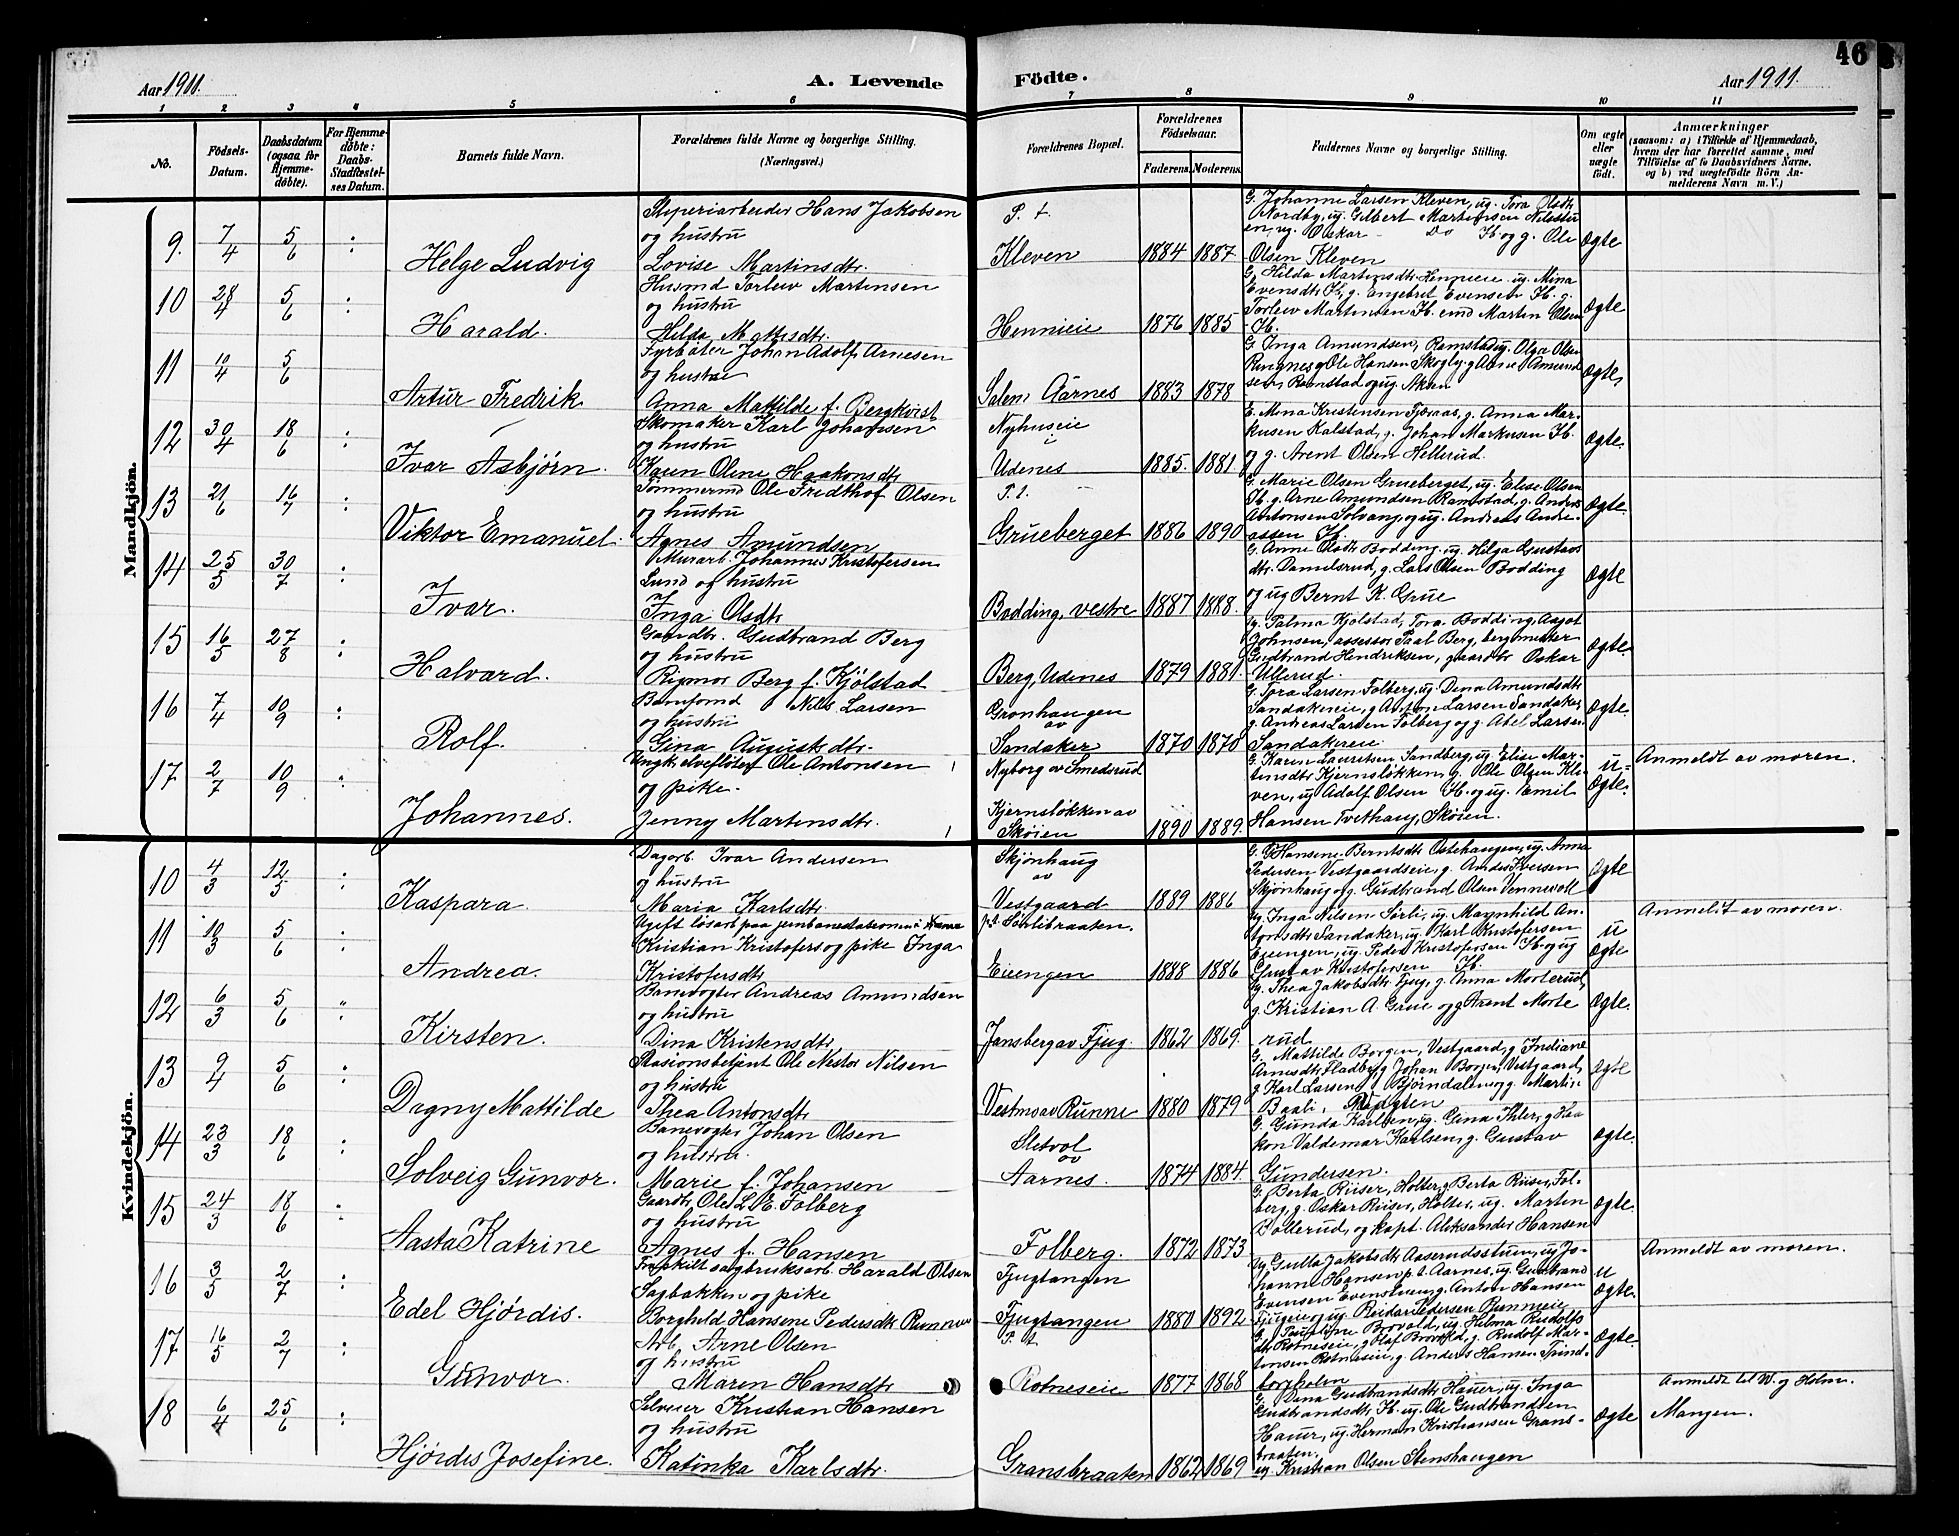 46
Aar 1911.
A. Levende
Födte.
Aar 1911.
1 2 3 4 5 6 7 8 9 10 11
No.
Födsels-Datum.
Daabsdatum (ogsaa for Hjemme-döbte).
For Hjemme-döbte: Daabs-Stadfæstelses Datum.
Barnets fulde Navn.
Forældrenes fulde Navne og borgerlige Stilling. (Næringsvei.)
Forældrenes Bopæl.
Forældrenes Födselsaar.
Faderens. Moderens.
Faddernes Navne og borgerlige Stilling.
Om ægte eller uægte födt.
Anmærkninger
(saasom: a) i Tilfælde af Hjemmedaab, hvem der har forrettet samme, med Tilföielse af to Daabsvidners Navne, og b) ved uægtefödte Börn Anmelderens Navn m. V.)
Mandkjön.
9. 7/4 5/6 Helge Ludvig
Sliperiarbeider Hans Jakobsen
og hustru
Lovise Martinsdtr.
P. t.
Kleven 1884 1887
G. Johanne Larsen Kleven, ug. Tora Olsdtr
Nordby, ug. Gilbert Martinsen
ug. Oskar Do H. og g. Ole
Olsen Kleven
Ægte
10 28/4 5/6 Harald.
Husmd Torleiv Martinsen
og hustru
Hilda Mattisdtr.
Hennieie 1876 1885
G. Hilda Martinsdtr. Hennieie ug. Mina
Evensdtr H., g. Engebret Evensen H. g.
Torleiv Martinsen H. emd Martin Olsen
H.
Ægte
11 10/4 5/6 Artur Fredrik
Fyrbøter Johan Adolf Arnesen
og hustru
Anna Matilde f. Bergkvist
Salem Aarnes 1883 1878
G. Inga Amundsen, Ramstad ug. Olga Olsen
Ringnes g. Ole Hansen Skogly g. Arne Amundsen, Ramstad og ug.
Ægte,
12 30/4 18/6 Ivar Asbjørn.
Skomaker Karl Johansen
og hustru
Karen Oline Haakonsdtr
Nyhuseie
i
Udenes 1885. 1881.
E. Mina Kristensen Fjæraas, g. Anna Markusen Kalstad, g. Johan Markusen H.
og g. Arent Olsen Hellerud.
Ægte.
13 21/6 16/7 Viktor Emanuel.
Tømmermd Ole Fridthof Olsen
og hustru
Agnes Amundsen
P. t.
Grueberget 1886 1890
G. Marie Olsen Grueberget, ug. Elise Olsen
H. g. Arne Amundsen Ramstad, g. Anders
Antonsen Solvang, og ug. Andreas Andreassen H.
Ægte.
14 25/5 30/7 Ivar.
Murarb. Johannes Kristofersen
Lund og hustru
Inga Olsdtr
Bodding, vestre 1887 1888.
G. Anne Olsdtr Bodding, ug. Helga Gustavsdtr. Danielsrud, g. Lars Olsen Bodding
og ug Bernt K. Grue
Ægte
15 16/5 27/8 Halvard.
Gaardbr. Gudbrand Berg
og hustru
Rigmor Berg f. Kjølstad
Berg, Udenes 1879 1881.
g. Palma Kjølstad, Tora Bodding, Aagot
Johnsen, assessor Paal Berg, bergmester
Gudbrand Hendriksen, gaardbr Oskar
Ullerud.
Ægte.
16 7/4 10/9 Rolf.
Banefomd Nils Larsen
og hustru
Gina Augustsdtr.
Grønhaugen
av
Sandaker 1870 1870
G. Tora Larsen Folberg, ug. Dina Amundsdtr
Sandakereie, g Anton Larsen Sandaker,
g. Andreas Larsen Folberg og g. Abel Larsen
Sandakereie.
Ægte.
17 2/7 10/9 Johannes.
Ungk. elvefløter Ole Antonsen
og pike.
Jenny Martinsdtr.
Nyborg av Smedsrud
Kjernsløkken av
Skøien 1890 1889.
G. Karen Lauritsen Sandberg, ug. Elise Martinsdtr Kjernsløkken, g. Ole Olsen Kleven, ug Adolf Olsen H. og ug. Emil
Hansen Tvethaug, Skøien.
u-Ægte.
Anmeldt av moren.
Kvindekjön.
10 4/3 12/5 Kaspara.
Dagarb. Ivar Andersen
og hustru
Maria Karlsdtr.
Skjønhaug
av
Vestgaard 1889 1886
G. Hansine Berntsdtr Ostehaugen, ug. Anna
Pedersen Vestgaardseie, g. Anders Iversen
Skjønhaug og g. Gudbrand Olsen Vennevoll
Ægte
11 10/3 5/6 Andrea.
Ugift løsarb paa jernbanestationen i
Kristian Kristofers og pike Inga
Kristofersdtr
pt. Sørlibraaten.
Eiengen 1888 1886
ug. Inga Nilsen Sørli, ug. Magnhild Antonsdtr Sandaker, ug. Karl Kristofersen
Eiengen, ug. Peder Kristofersen H. og ug
Gustav Kristofersen H.
u ægte
Anmeldt av moren.
12 6/3 5/6 Kirsten.
Banevogter Andreas Amundsen
og hustru
Dina Kristensdtr.
Jansberg av Fjug. 1862 1869.
g. Thea Jakobsdtr. Fjug, g. Anna Morterud,
g. Kristian A. Grue og g. Arent Morterud
Ægte.
13 9/4 5/6 Dagny Matilde
Stasionsbetjent Ole Nestor Nilsen
og hustru
Thea Antonsdtr
Vestmo av Runni 1880 1879
G. Mattilde Borgen, Vestgaard, g. Indiane
Arnesdtr Fladberg, Johan Borgen Vestgaard,
g Karl Larsen, Bjørndalen og g. Martin
Baali,
Ægte
14 23/3 18/6 Solveig Gunvor.
Banevogter Johan Olsen
og hustru.
Marie f. Johansen
Sletvol
av
Aarnes. 1874 1884
G. Gunda Karlsen, ug. Gina Ihler, g Haakon Valdemar Karlsen, g. Gustav
Gundersen.
Ægte.
15 24/3 18/6 Aasta Katrine
Gaardbr. Ole L. E. Folberg
og hustru
Agnes f. Hansen
Folberg. 1872 1873
G. Berta Riiser, Holter, g Berta Riiser, Folberg, g. Oskar Riiser, Holter, ug. Marten
Bollerud, og kapt. Aleksander Hansen
Ægte.
16 3/5 2/7 Edel Hjørdis.
Fraskilt sagbruksarb. Harald Olsen
Sagbakken og pike
Borghild Hansine Pedersdtr Runni
Fjugtangen
Fjugtangen 1880 1892
ug. Gulla Jakobsdtr Aaserudsstuen, ug Johanne Hansen p. t. Aarnes, ug. Gudbrand
Evensen Evenstuen, g. Anton Hansen
Fjugeie og ug. Reidar Pedersen Runnieie
u Ægte.
Anmeldt av moren.
17 16/5 2/7 Gunvor.
Arb. Arne Olsen
og hustru
Maren Hansdtr
P. t.
Rotneseie 1877 1868
G. Pauline Brovald, ug. Helma Rudolfsdtr. Rotneseie, g Olaf Brovald, g. Rudolf Martinsen Rotneseie, g. Anders Hansen
Ægte.
18 6/4 25/6 Hjørdis Josefine.
Selveier Kristian Hansen
og hustru
Katinka Karlsdtr.
Gransbraaten 1862 1869
G. Dina Gudbrandsdtr Hauer, ug. Inga
Gudbrandsdtr H. ug. Ole Gudbrandsen
Hauer, ug. Herman Kristiansen Gransbraaten.
ug. Kristian Olsen Stenshaugen
Ægte
Anmeldt til W. og Holm.
Mangen.